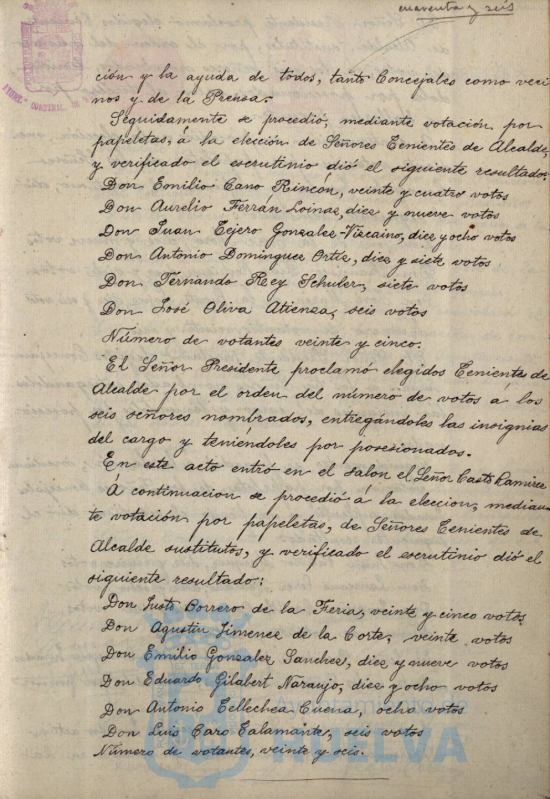 cuarenta y seis
ción y la ayuda de todos, tanto Concejales como veci
nos y de la Prensa.
Seguidamente se procedió, mediante votación, por
papeletas, á la elección de Señores Tenientes de Alcalde,
y verificado el escrutinio dió el siguiente resultado.
Don Emilio Cano Rincón, veinte y cuatro votos
Don Aurelio Ferrán Loinaz, diez y nueve votos
Don Juan Tejero Gonzalez-Vizcaino, diez y ocho votos
Don Antonio Dominguez Ortiz, diez y siete votos
Don Fernando Rey Schuler, siete votos
Don José Oliva Atienza, seis votos
Número de votantes veinte y cinco.
El Señor Presidente proclamó elegidos Tenientes de
Alcalde por el orden del número de votos á los
seis señores nombrados, entregándoles las insignias
del cargo y teniendoles por posesionados.
En este acto entró en el salon el Señor Casto Ramirez
Á continuacion se procedió á la eleccion, median
te votación por papeletas, de Señores Tenientes de
Alcalde sustitutos, y verificado el escrutinio dió el
siguiente resultado:
Don Justo Borrero de la Feria, veinte y cinco votos
Don Agustin Jimenez de la Corte, veinte votos
Don Emilio Gonzalez Sanchez, diez y nueve votos
Don Eduardo Gilabert Naranjo, diez y ocho votos
Don Antonio Tellechea Cuena, ocho votos
Don Luis Caro Talamante, seis votos
Número de votantes, veinte y seis.
HUELVA